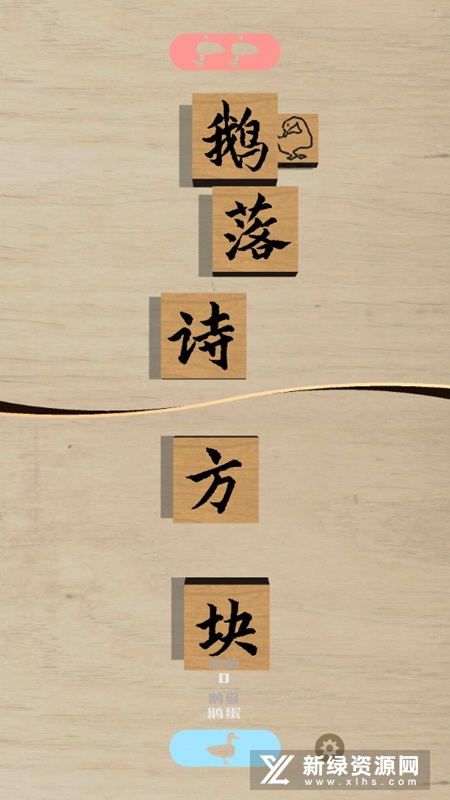 鹅
落
诗
方
块
0
鹅蛋
新绿资源网
www.xlhs.com